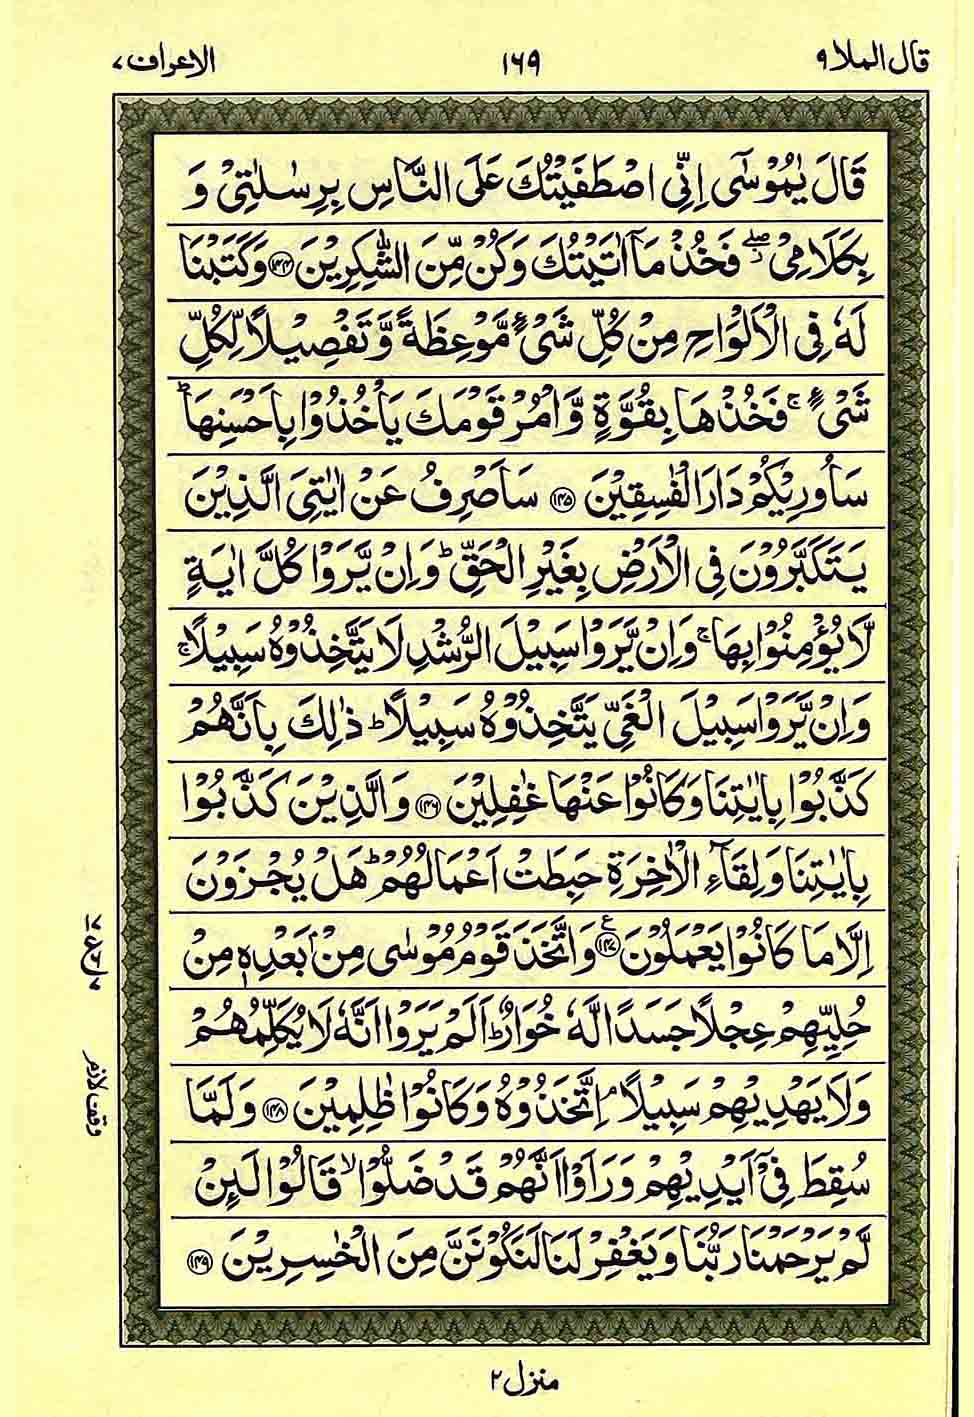 قال الملا ٩ ١٦٩ الاعراف ٧
قَالَ يٰمُوْسٰۤى اِنِّى اصْطَفَيْتُكَ عَلَى النَّاسِ بِرِسٰلٰتِىْ وَ
بِكَلَامِىْ ۖ فَخُذْ مَاۤ اٰتَيْتُكَ وَكُنْ مِّنَ الشّٰكِرِيْنَ ﴿١٤٤﴾ وَكَتَبْنَا
لَهٗ فِى الْاَلْوَاحِ مِنْ كُلِّ شَىْءٍ مَّوْعِظَةً وَّتَفْصِيْلًا لِّكُلِّ
شَىْءٍ ۚ فَخُذْهَا بِقُوَّةٍ وَّاْمُرْ قَوْمَكَ يَاْخُذُوْا بِاَحْسَنِهَا ؕ
سَاُورِيْكُمْ دَارَ الْفٰسِقِيْنَ ﴿١٤٥﴾ سَاَصْرِفُ عَنْ اٰيٰتِىَ الَّذِيْنَ
يَتَكَبَّرُوْنَ فِى الْاَرْضِ بِغَيْرِ الْحَقِّ ؕ وَاِنْ يَّرَوْا كُلَّ اٰيَةٍ
لَّا يُؤْمِنُوْا بِهَا ۚ وَاِنْ يَّرَوْا سَبِيْلَ الرُّشْدِ لَا يَتَّخِذُوْهُ سَبِيْلًا ۚ
وَاِنْ يَّرَوْا سَبِيْلَ الْغَىِّ يَتَّخِذُوْهُ سَبِيْلًا ؕ ذٰلِكَ بِاَنَّهُمْ
كَذَّبُوْا بِاٰيٰتِنَا وَكَانُوْا عَنْهَا غٰفِلِيْنَ ﴿١٤٦﴾ وَالَّذِيْنَ كَذَّبُوْا
بِاٰيٰتِنَا وَلِقَآءِ الْاٰخِرَةِ حَبِطَتْ اَعْمَالُهُمْ ؕ هَلْ يُجْزَوْنَ
اِلَّا مَا كَانُوْا يَعْمَلُوْنَ ﴿١٤٧﴾ وَاتَّخَذَ قَوْمُ مُوْسٰى مِنْۢ بَعْدِهٖ مِنْ
حُلِيِّهِمْ عِجْلًا جَسَدًا لَّهٗ خُوَارٌ ؕ اَلَمْ يَرَوْا اَنَّهٗ لَا يُكَلِّمُهُمْ
وَلَا يَهْدِيْهِمْ سَبِيْلًا ۘ اِتَّخَذُوْهُ وَكَانُوْا ظٰلِمِيْنَ ﴿١٤٨﴾ وَلَمَّا
سُقِطَ فِىْۤ اَيْدِيْهِمْ وَرَاَوْا اَنَّهُمْ قَدْ ضَلُّوْا ۙ قَالُوْا لَئِنْ
لَّمْ يَرْحَمْنَا رَبُّنَا وَيَغْفِرْ لَنَا لَنَكُوْنَنَّ مِنَ الْخٰسِرِيْنَ ﴿١٤٩﴾
وقف لازم
منزل ٢